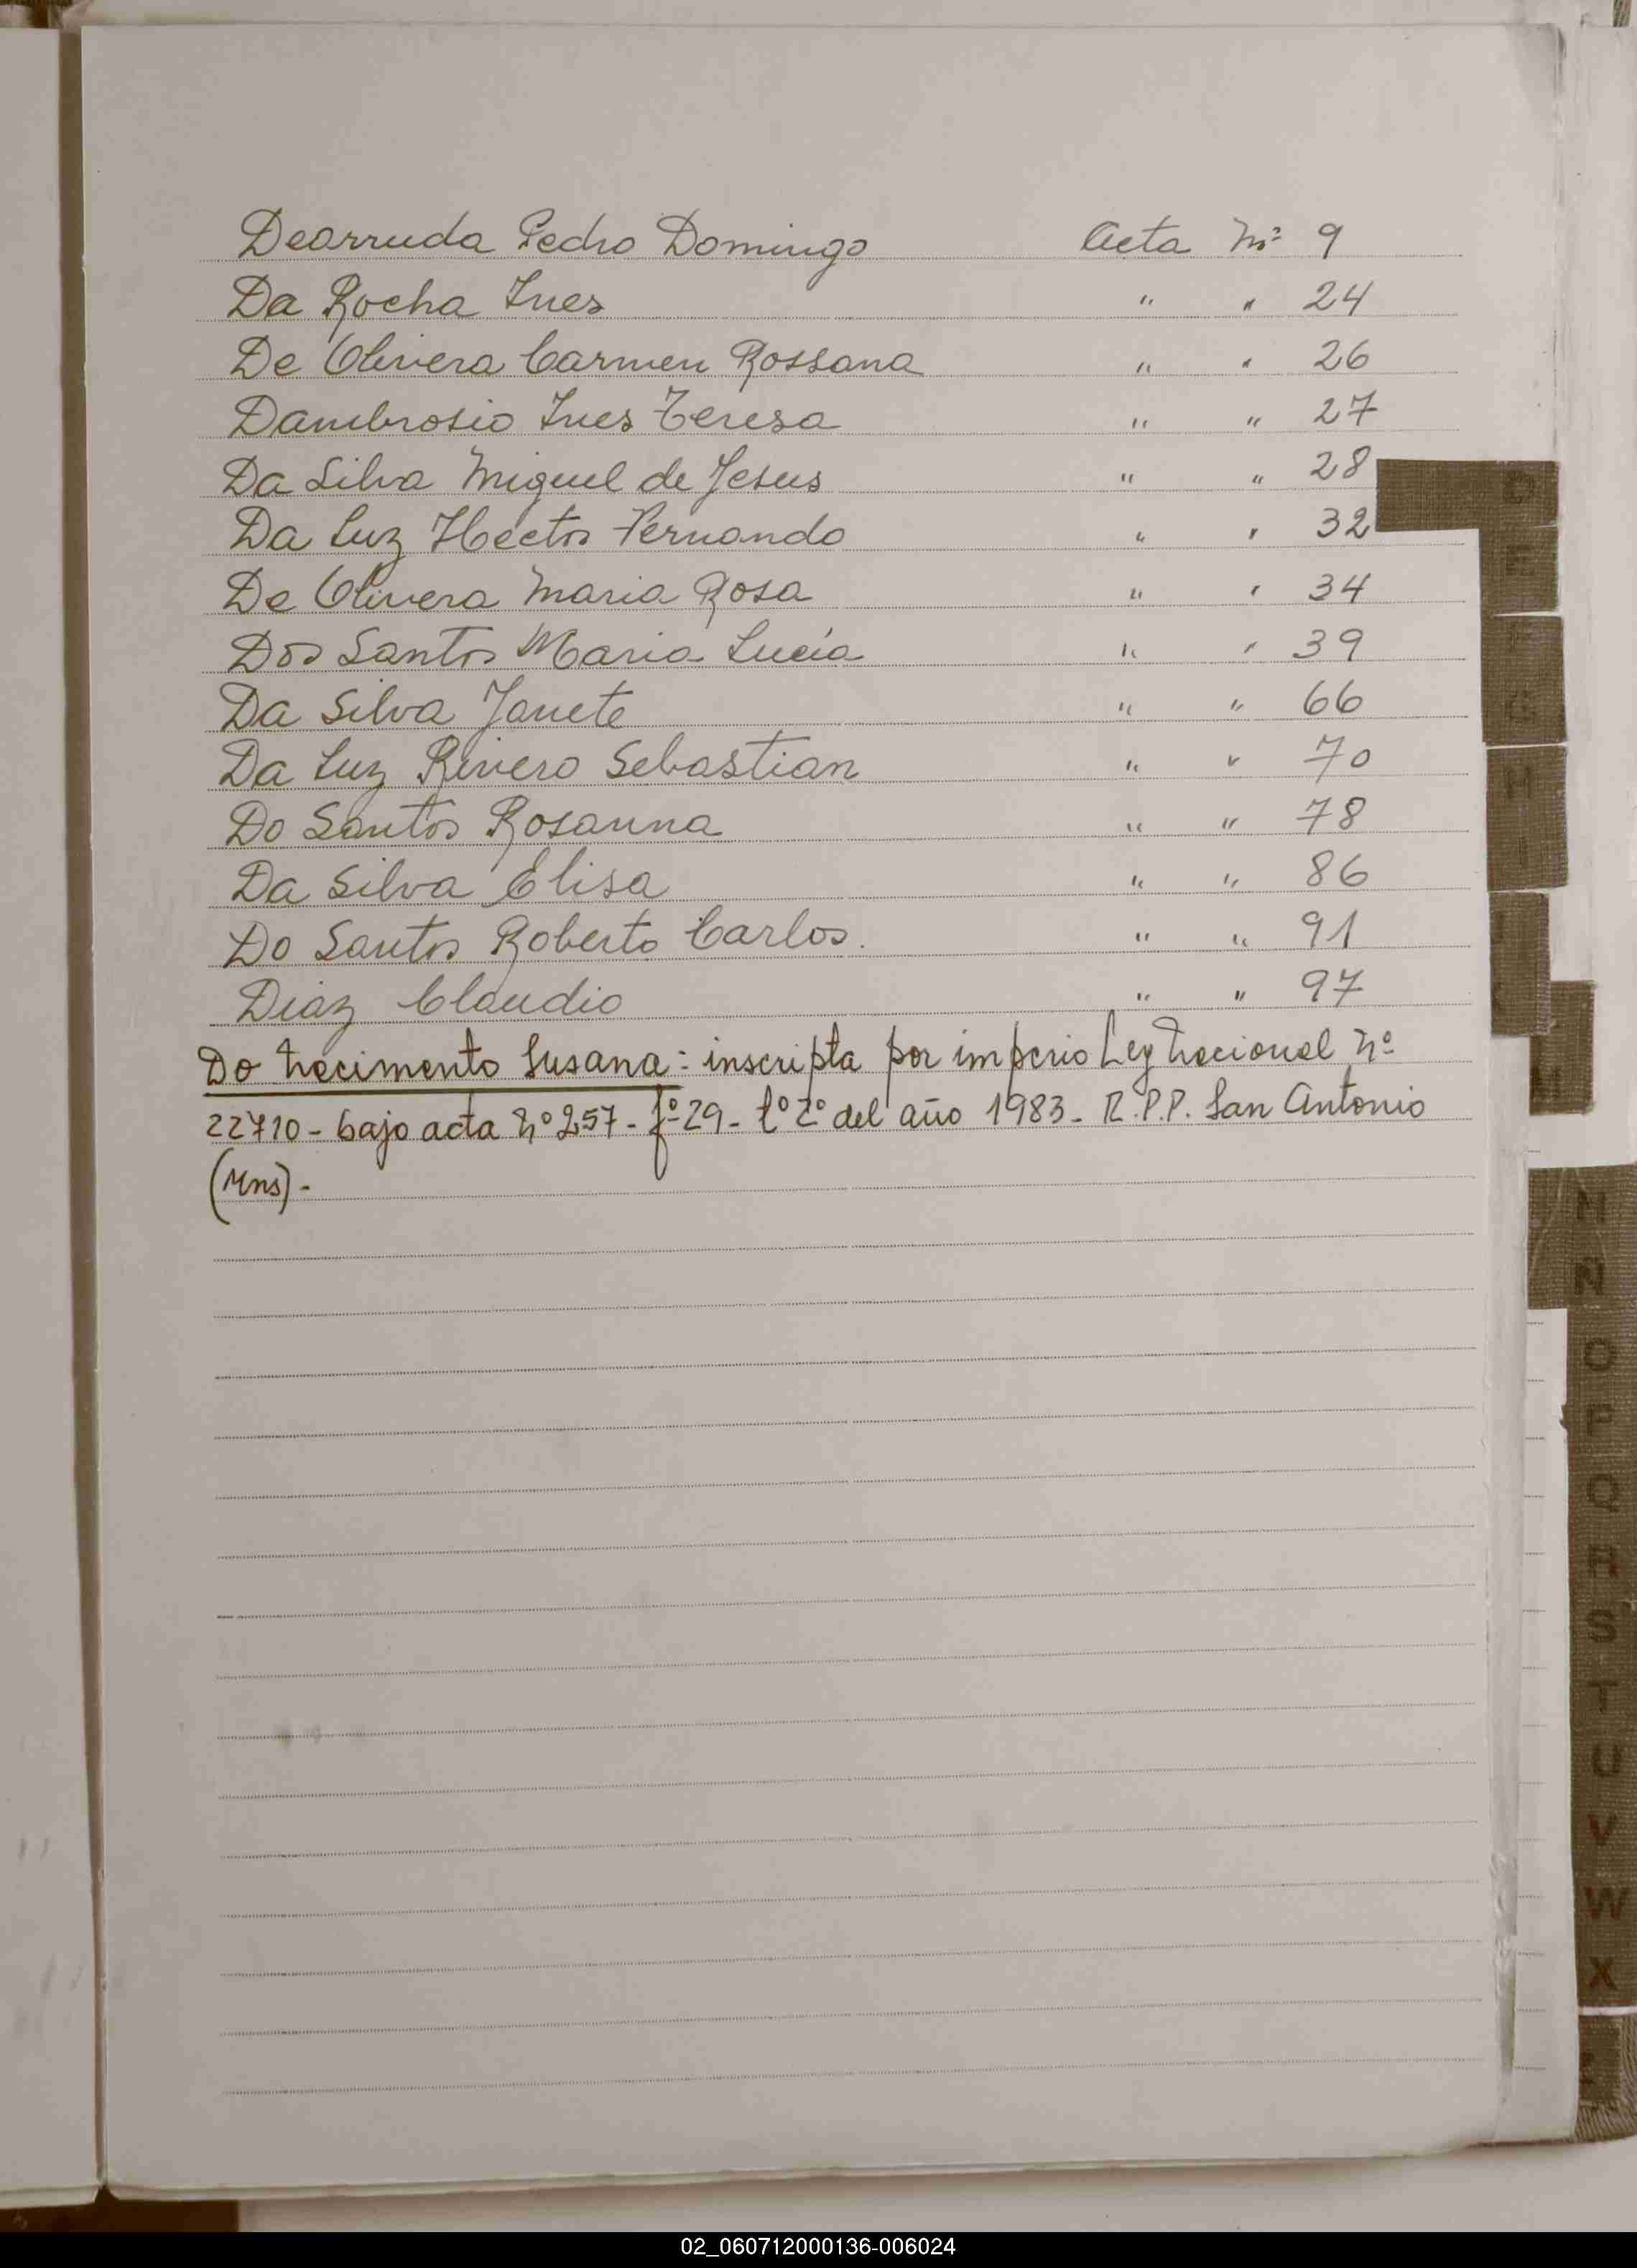 Dearruda Pedro Domingo Acta Nº 9
Da Rocha Ines " " 24
De Olivera Carmen Rossana " " 26
Dambrosio Ines Teresa " " 27
Da Silva Miguel de Jesus " " 28
Da Luz Hector Fernando " " 32
De Olivera Maria Rosa " " 34
Dos Santos Maria Lucía " " 39
Da Silva Janete " " 66
Da Luz Rivero Sebastian " " 70
Do Santos Rosanna " " 78
Da Silva Elisa " " 86
Do Santos Roberto Carlos. " " 91
Diaz Claudio " " 97
Do Nacimento Susana: inscripta por imperio Ley Nacional Nº
22710 - bajo acta Nº 257 - fº 29 - tº 2º del año 1983 - R.P.P. San Antonio
(Mns) -
D
E
F
G
H
I
J
K
L
M
M
N
O
P
Q
R
S
T
U
V
W
X
Z
02_060712000136-006024